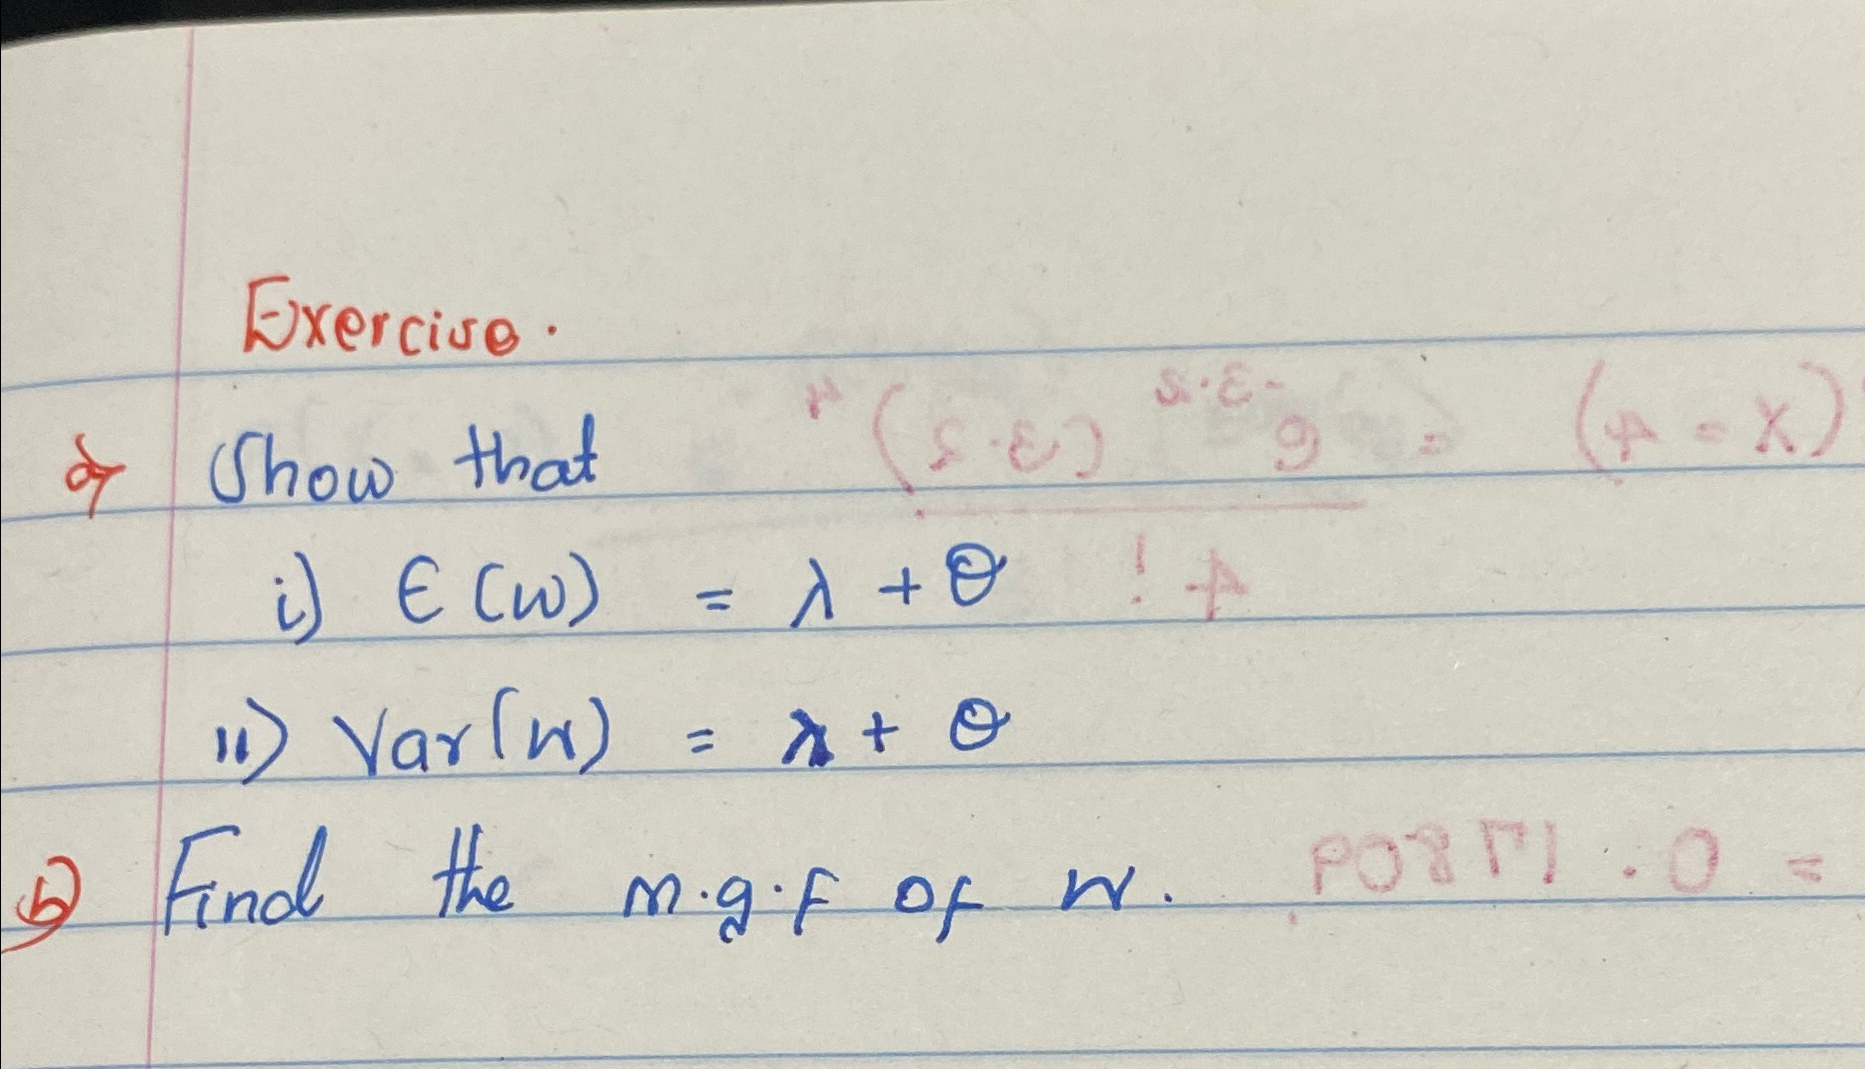 Exercise.
a) Show that
i) E(W) = λ + θ
ii) Var(W) = λ + θ
b) Find the m.g.f of W.